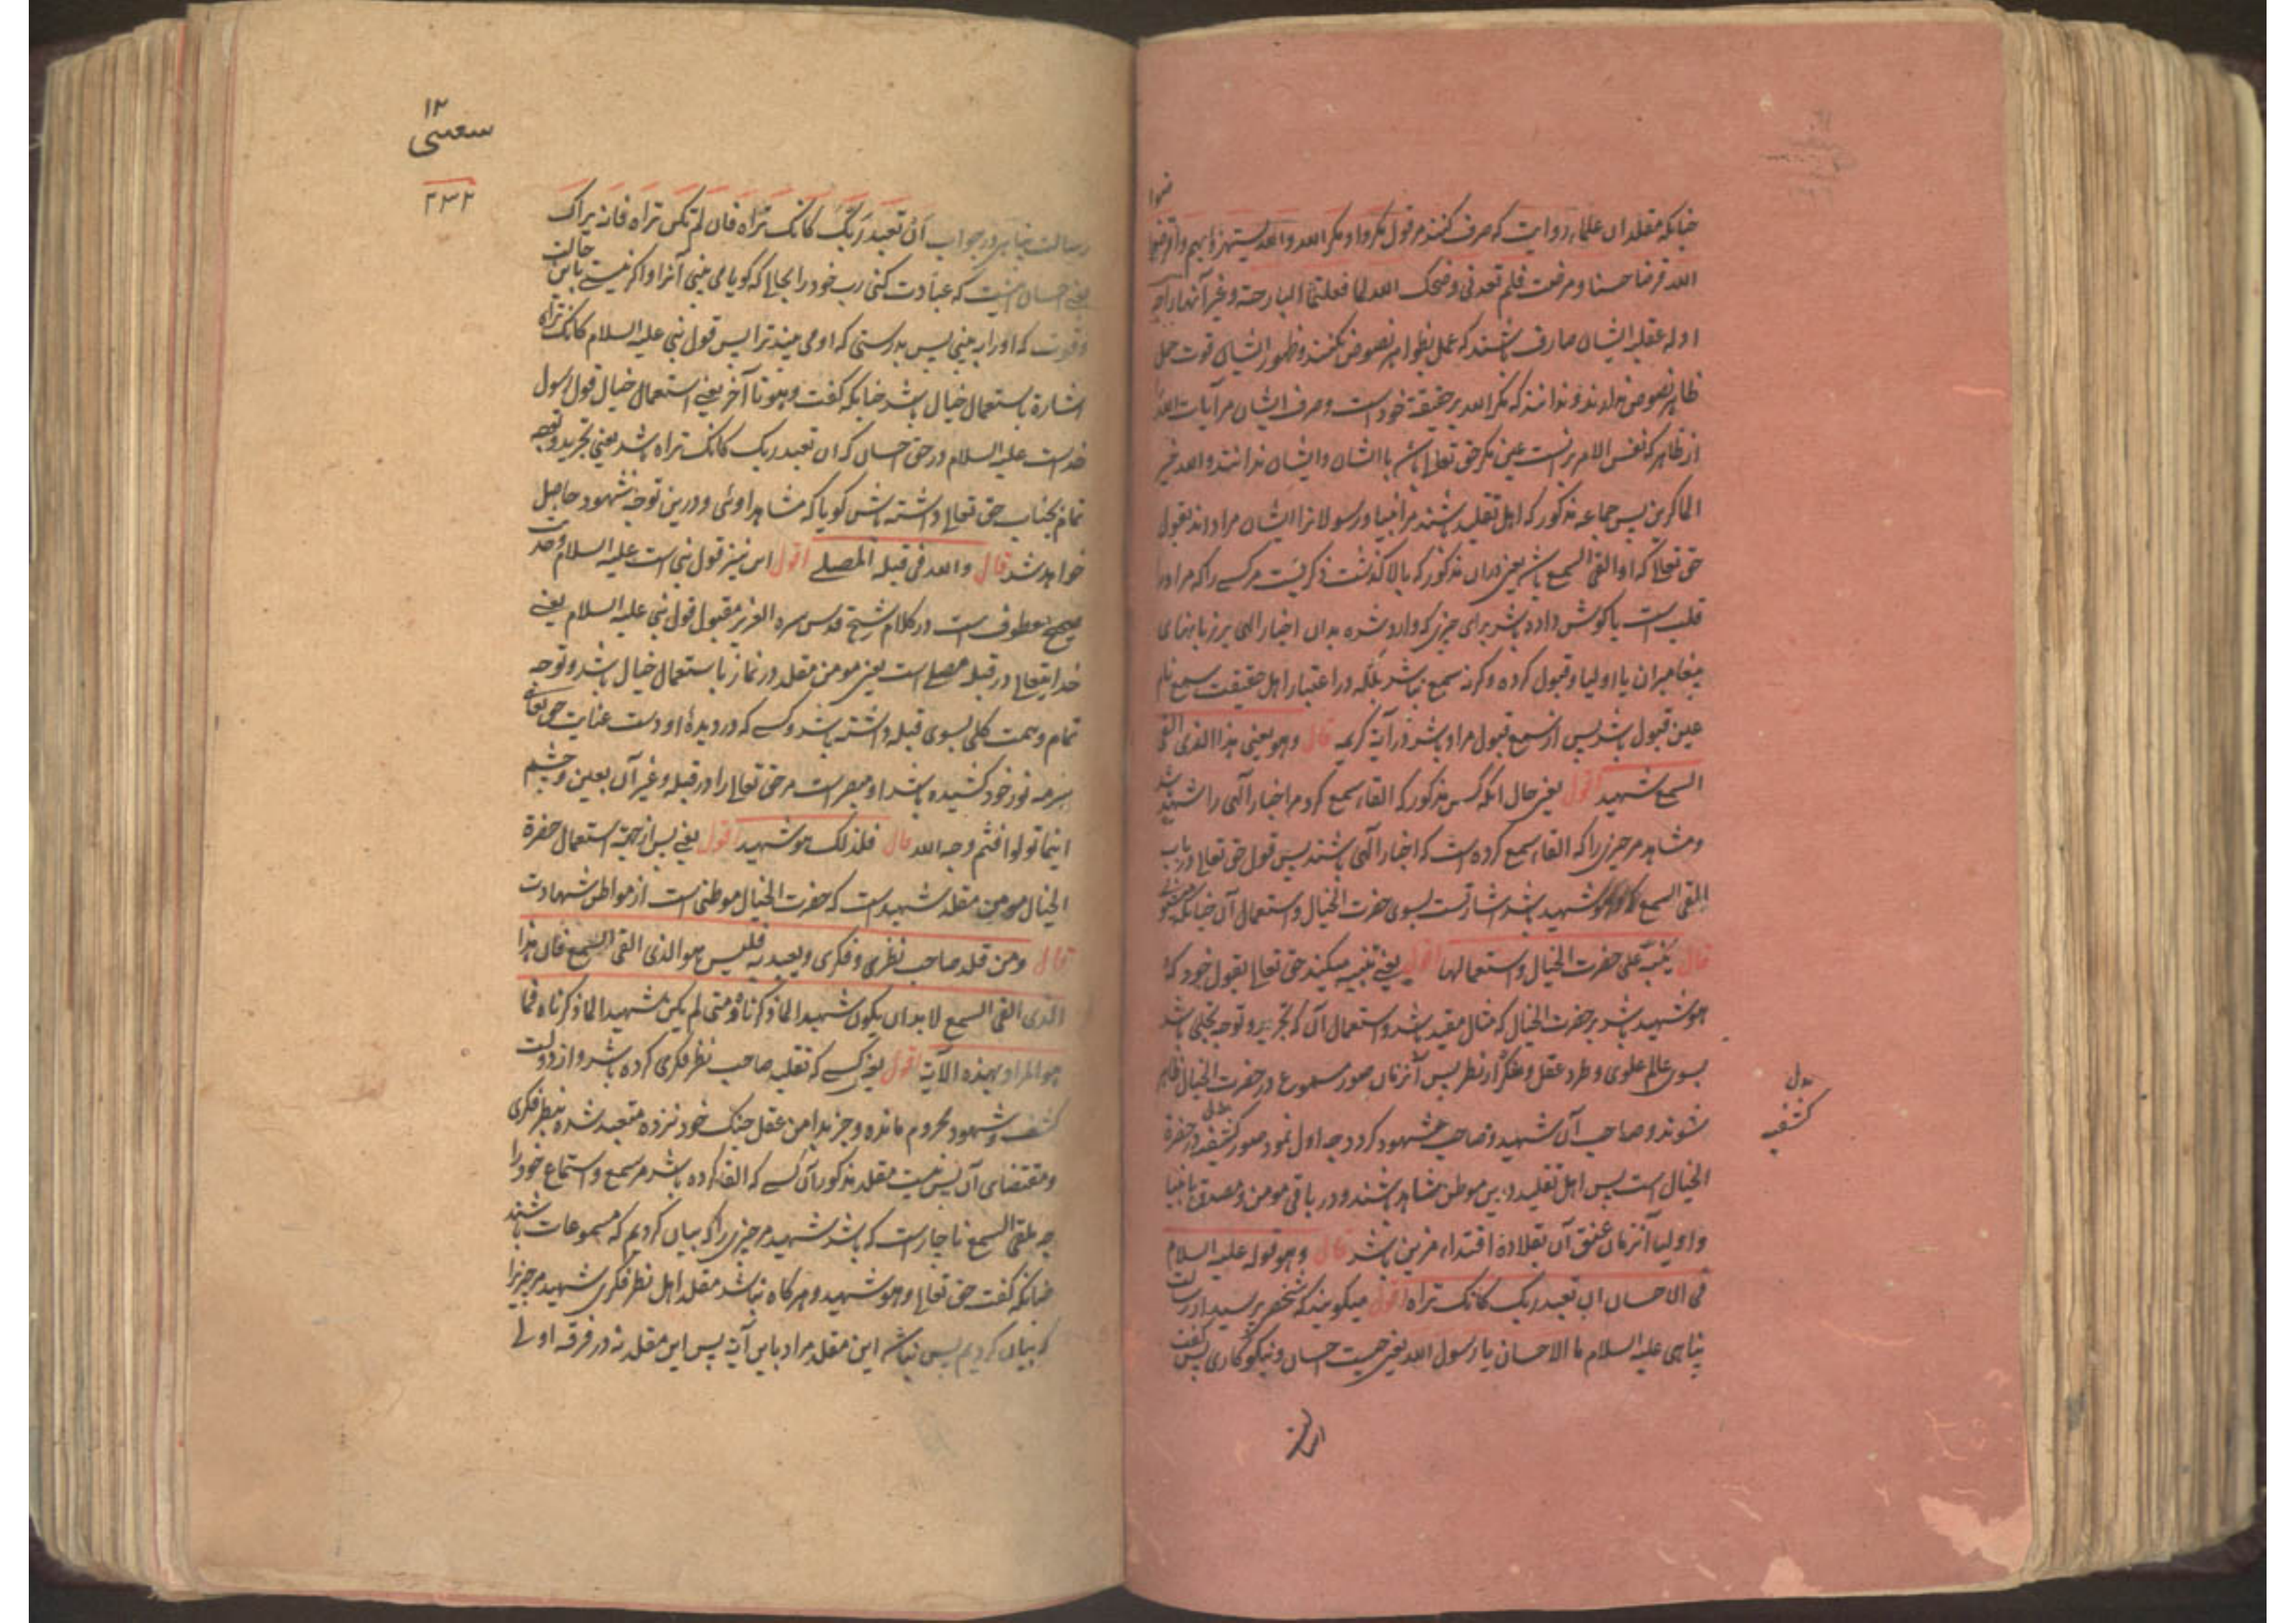 چنانکه مقلدان علماء روایت که صرف کنند مر قول مکروا و مکر الله والله یستهزئ بهم واقرضوا
الله قرضا حسنا و مرضت فلم تعدنی و ضحک الله لما فعلتما البارحة و غیر آنها را چه
ادله عقلیه ایشان صارف باشند که عمل بظواهر نصوص نکنند و ظهور ایشان قوت حمل
ظاهر نصوص ندارند و ندانند که مکر الله بر حقیقة خود است و صرف ایشان مر آیات الله
از ظاهر که نفس الامر بر آنست عین مکر حق تعالی باشد با ایشان و ایشان ندانند والله خیر
الماکرین پس جماعه مذکور که اهل تقلید باشند مر انبیا و رسولانرا ایشان مراد اند بقول
حق تعالی که او القی السمع باشد یعنی دران مذکور که بالا گذشت ذکریست مر کسی را که مر او را
قلب است یا گوش داده باشد برای چیزی که وارد شده بدان اخبار الهی بر زبانهای
پیغامبران یا اولیا و قبول کرده و گرنه سمیع نباشد بلکه در اعتبار اهل حقیقت سمیع نام
عین قبول باشد پس از سمع قبول مراد باشد در آیة کریمه قال وهو یعنی هذا الذی القی
السمع شهید اقول یعنی حال آنکه کس مذکور که القاء سمیع کرد مر اخبار الهی را شهید باشد
و مشاهد مر چیزی را که القاء سمیع کرده است که اخبار الهی باشند پس قول حق تعالی در باب
القی السمع وهو شهید باشد اشارتست بسوی حضرت الخیال و استعمال آن چنانکه میگوید
قال ینبه علی حضرت الخیال و استعمالها اقول یعنی تنبیه میکند حق تعالی بقول خود که
هو شهید باشد بر حضرت الخیال که مثال مقید باشد و استعمال آن که تجرید و توجه تجلی باشد
بسوی عالم علوی و طرد عقل و تفکر از نظر پس آنزمان صور مسموع در حضرت الخیال ظاهر
شوند و صاحب آن شهید و صاحب شهود گردد چه اول نمود صور کشفیه در حضرة
بدل
کشفیه
الخیال است پس اهل تقلید درین موطن مشاهد باشند و در باقی مومن و مصدق بانبیا
و اولیا آنزمان عنق آن بقلاده اقتداء مزین باشد قال وهو قوله علیه السلام
فی الاحسان ان تعبد ربک کانک تراه اقول میگویند که شخصی پرسید از رسالت
پناهی علیه السلام ما الاحسان یا رسول الله یعنی چیست احسان و نیکوکاری پس گفت
۱۲
۲۳۲
رسالت پناهی در جواب ان تعبد ربک کانک تراه فان لم تکن تراه فانه یراک
یعنی احسان اینست که عبادت کنی رب خود را بجایی که گویا می بینی آنرا و اگر نیست باین حالت
وقوت که او را به بینی پس بدرستی که او می بیند ترا پس قول نبی علیه السلام کانک تراه
اشارة باستعمال خیال باشد چنانکه گفت و هو تا آخر یعنی استعمال خیال قول رسول
خداست علیه السلام در حق احسان که ان تعبد ربک کانک تراه باشد یعنی تجرید و توجه
تمام بجناب حق تعالی داشته باش گویا که مشاهد اوئی و درین توجه شهود حاصل
خواهد شد قال والله فی قبلة المصلی اقول این نیز قول نبی است علیه السلام وحدیث
صحیح معطوف است در کلام شیخ قدس سره العزیز مقبول قول نبی علیه السلام یعنی
خدایتعالی در قبله مصلی است یعنی مومن مقلد در نماز باستعمال خیال باشد و توجه
تمام و همت کلی بسوی قبله داشته باشد و کسی که در دیدۀ او دست عنایت حق تعالی
سرمه نور خود کشیده باشد او مبصر است مر حق تعالی را در قبله و غیر آن بعین و چشم
اینما تولوا فثم وجه الله قال فلذلک هو شهید اقول یعنی پس از جهة استعمال حضرة
الخیال مومن مقلد شهید است که حضرت الخیال موطنی است از مواطن شهادت
قال ومن قلد صاحب نظری و فکری و یعبد به فلیس هو الذی القی السمع فان هذا
الذی القی السمع لا بد ان یکون شهیدا لما ذکرناه و متی لم یکن شهیدا لما ذکرناه فما
هو المراد بهذه الآیة اقول یعنی کسی که تقلید صاحب نظر فکری کرده باشد و از دولت
کشف و شهود محروم مانده و جز بدامن عقل چنگ خود نزده متعبد شده بنظر فکری
و مقتضای آن پس نیست مقلد مذکور آن کسی که القاء کرده باشد مر سمع و استماع خود را
چه ملقی السمع ناچار است که باشد شهید مر چیزی را که بیان کردیم که مسموعات باشند
چنانکه گفت حق تعالی وهو شهید و هرگاه نباشد مقلد اهل نظر فکری شهید مر چیزی را
که بیان کردیم پس نباشد این مقلد مراد باین آیة پس این مقلد نه در فرقه اولی